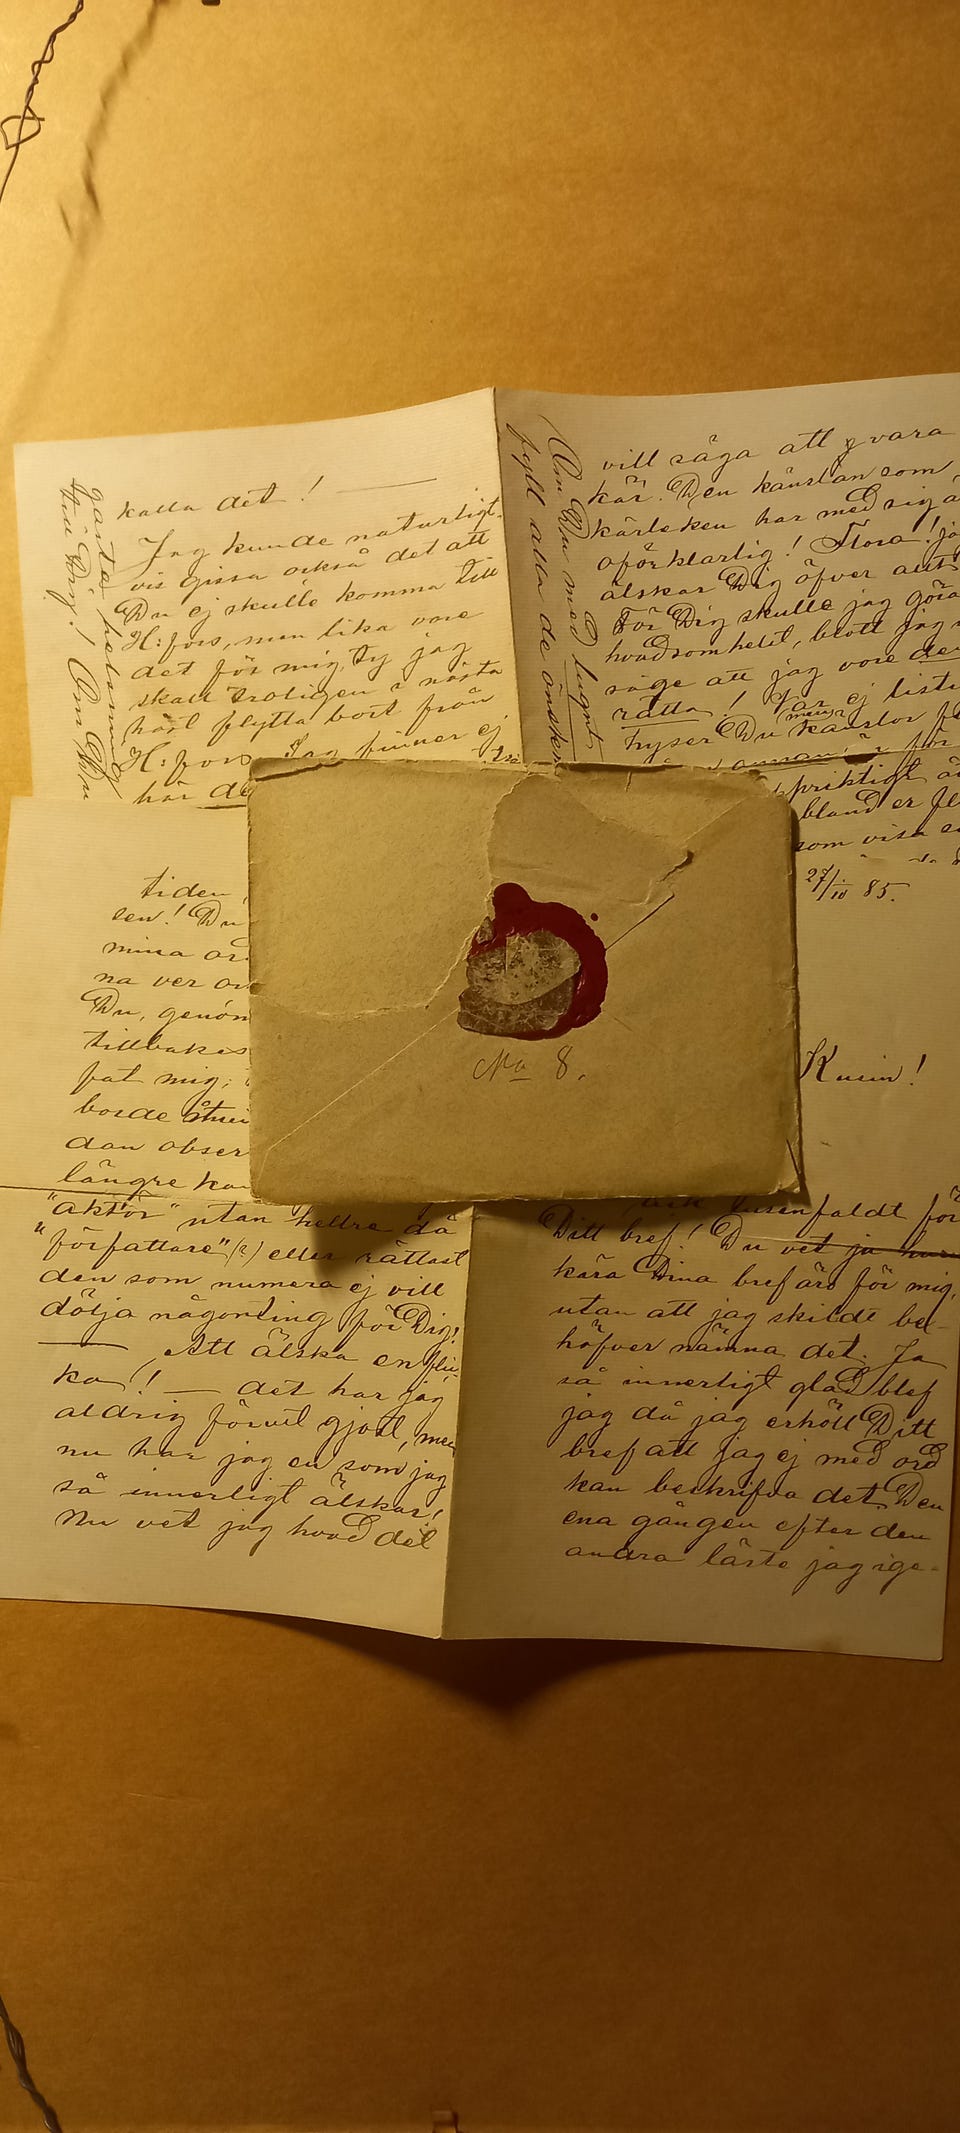 kalla det! —
Jag kunde naturligt-
vis gissa också det att
Du ej skulle komma till
H:fors, men lika vore
det för mig, ty jag
skall troligen i nästa
höst flytta bort från
H:fors. Jag finner ej
här
hjärta
till Dig! Om Du
Om Du med lugnt
fyll alla de önskn
vill säga att vara
kär. Den känslan som
kärleken har med sig ä
oförklarlig! Flora! ja
älskar Dig öfver allt
För Dig skulle jag göra
hvadsomhelst, blott jag
säge att jag vore den
rätta! Var ej listi
hyser Du känslor för
annan är för
ppriktigt
bland er
som visa
27/10 85.
Kusin!
tiden
sen! Du
mina or
na ver
Du, genom
tillbakas
fat mig;
borde
dan obser
längre ka
"aktör" utan hellre då
"författare" (?) eller rättast
den som numera ej vill
dölja någonting för Dig!
— Att älska en flic-
ka!! — det har jag
aldrig förut gjort, men
nu har jag en som jag
så innerligt älskar!
Nu vet jag hvad det
Tack tusenfaldt för
Ditt bref! Du vet ju huru
kära Dina bref äro för mig,
utan att jag skilde be-
höfver nämna det. Ja
så innerligt glad blef
jag då jag erhöll Ditt
bref att jag ej med ord
kan beskrifva det. Den
ena gången efter den
andra läste jag ige-
No 8.